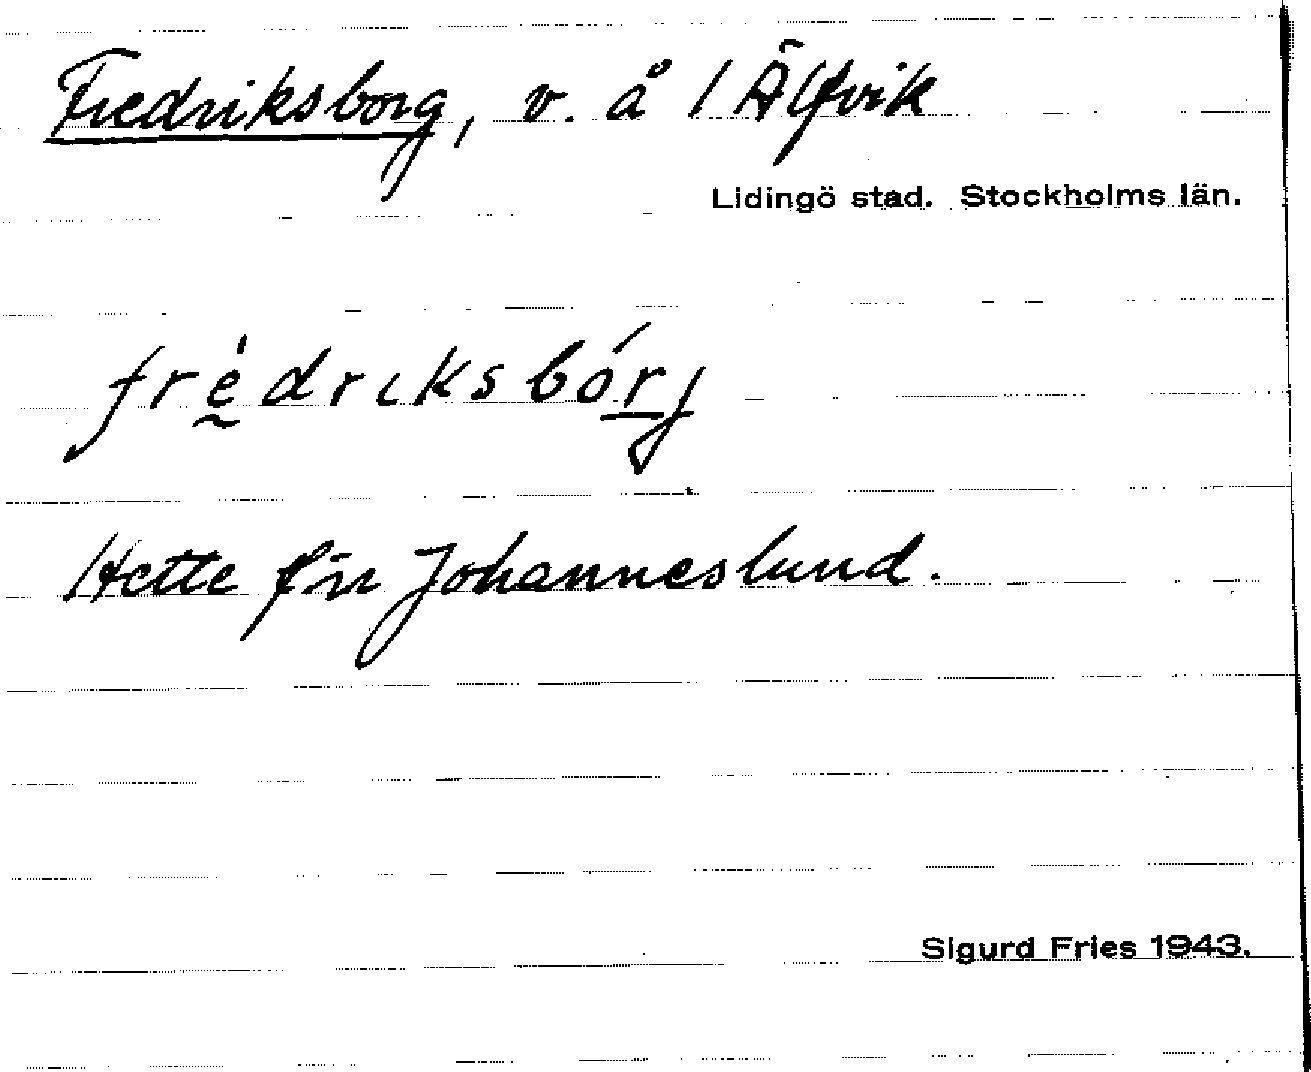 Fredriksborg, v. å 1 Älfvik
Lidingö stad. Stockholms län.
frèdriksbórj
Hette förr Johanneslund.
Sigurd Fries 1943.